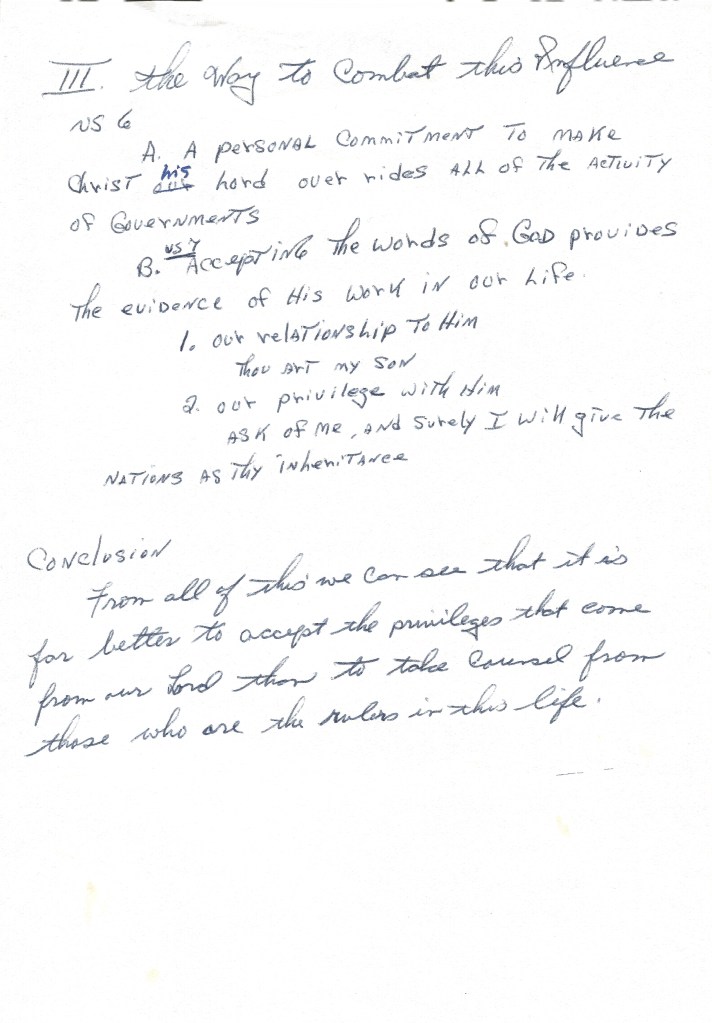 III. the Way to Combat this Influence
VS 6
A. A personal commitment to make
Christ his our Lord over rides all of the activity
of Governments
B. vs 7 Accepting the words of God provides
the evidence of His work in our Life.
1. our relationship to Him
Thou art my son
2. our privilege with Him
Ask of me, and surely I will give the
nations as thy inheritance
Conclusion
From all of this we can see that it is
far better to accept the privileges that come
from our Lord than to take Counsel from
those who are the rulers in this life.